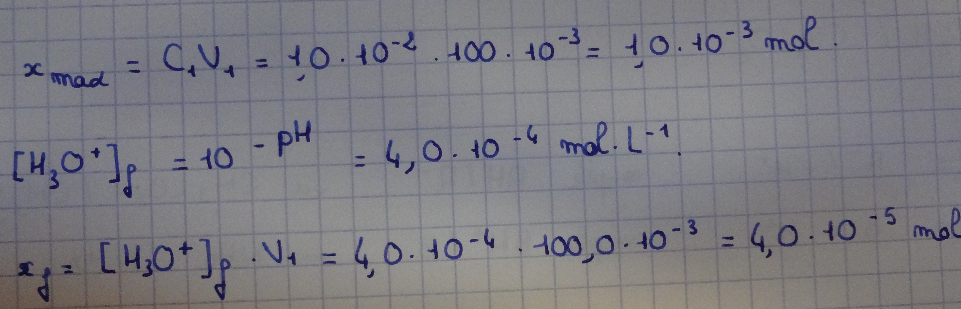 x max = C₁V₁ = 1,0·10⁻²·100·10⁻³ = 1,0·10⁻³ mol.
[H₃O⁺]f = 10⁻ᵖᴴ = 4,0·10⁻⁴ mol.L⁻¹.
xf = [H₃O⁺]f·V₁ = 4,0·10⁻⁴·100,0·10⁻³ = 4,0·10⁻⁵ mol